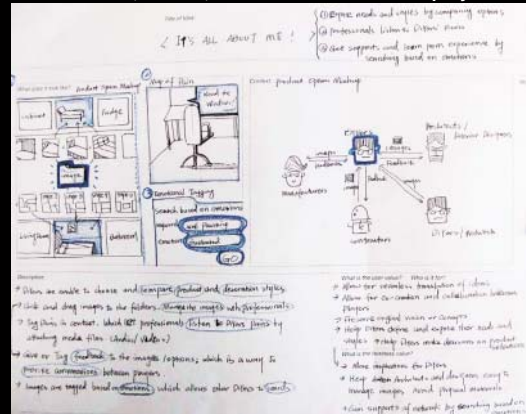 Title of Idea
< IT'S ALL ABOUT ME !
① Expose needs and styles by comparing options
② professionals listen to DIYers' Pains
③ Get supports and learn from experience by
searching based on emotions
What does it look like? Product Option Mashup
Cabinet
Fudge
image
Living Room
Bathroom
② Map of Pain
③ Emotional Tagging
Search based on emotions
wall painting
emotion
frustrated
GO
Context Product Option Mashup
DIYers
Architects /
Interior Designers
images
Feedback
Manufacturers
images
Feedback
images
Feedback
images
Contractors
Description
→ DIYers are able to choose and compare product and decoration styles
→ Click and drag images to the folders. Share the images with professionals
→ Tag Pains in context. Which let professionals listen to DIYers Pains by
attaching media files (Audio / Video)
→ Give or Tag feedback to the images / options, which is a way to
provoke conversations between players.
→ Images are tagged based on emotions which allows other DIYers to search
What is the user value? Who is it for?
→ Allow for seamless translation of ideas
→ Allow for co-creation and collaboration between
players
→ Preserve original vision or concepts
→ Help DIYers define and expose their needs and
styles → Help DIYers make decisions on product
What is the business value?
→ More inspirations for DIYers
→ Help Architects and designers easy to
manage images. Avoid physical materials
→ Gain supports of network by searching based on